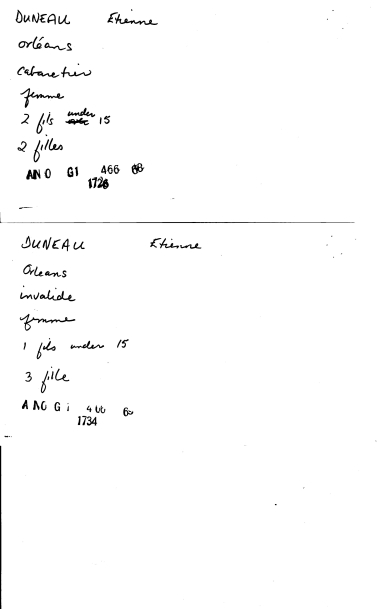 DUNEAU Etienne
orléans
cabaretier
femme
2 fils under 15
2 filles
AN O G1 466 68
1726
DUNEAU Etienne
Orleans
invalide
femme
1 fils under 15
3 fille
A NO G 1 466
1734